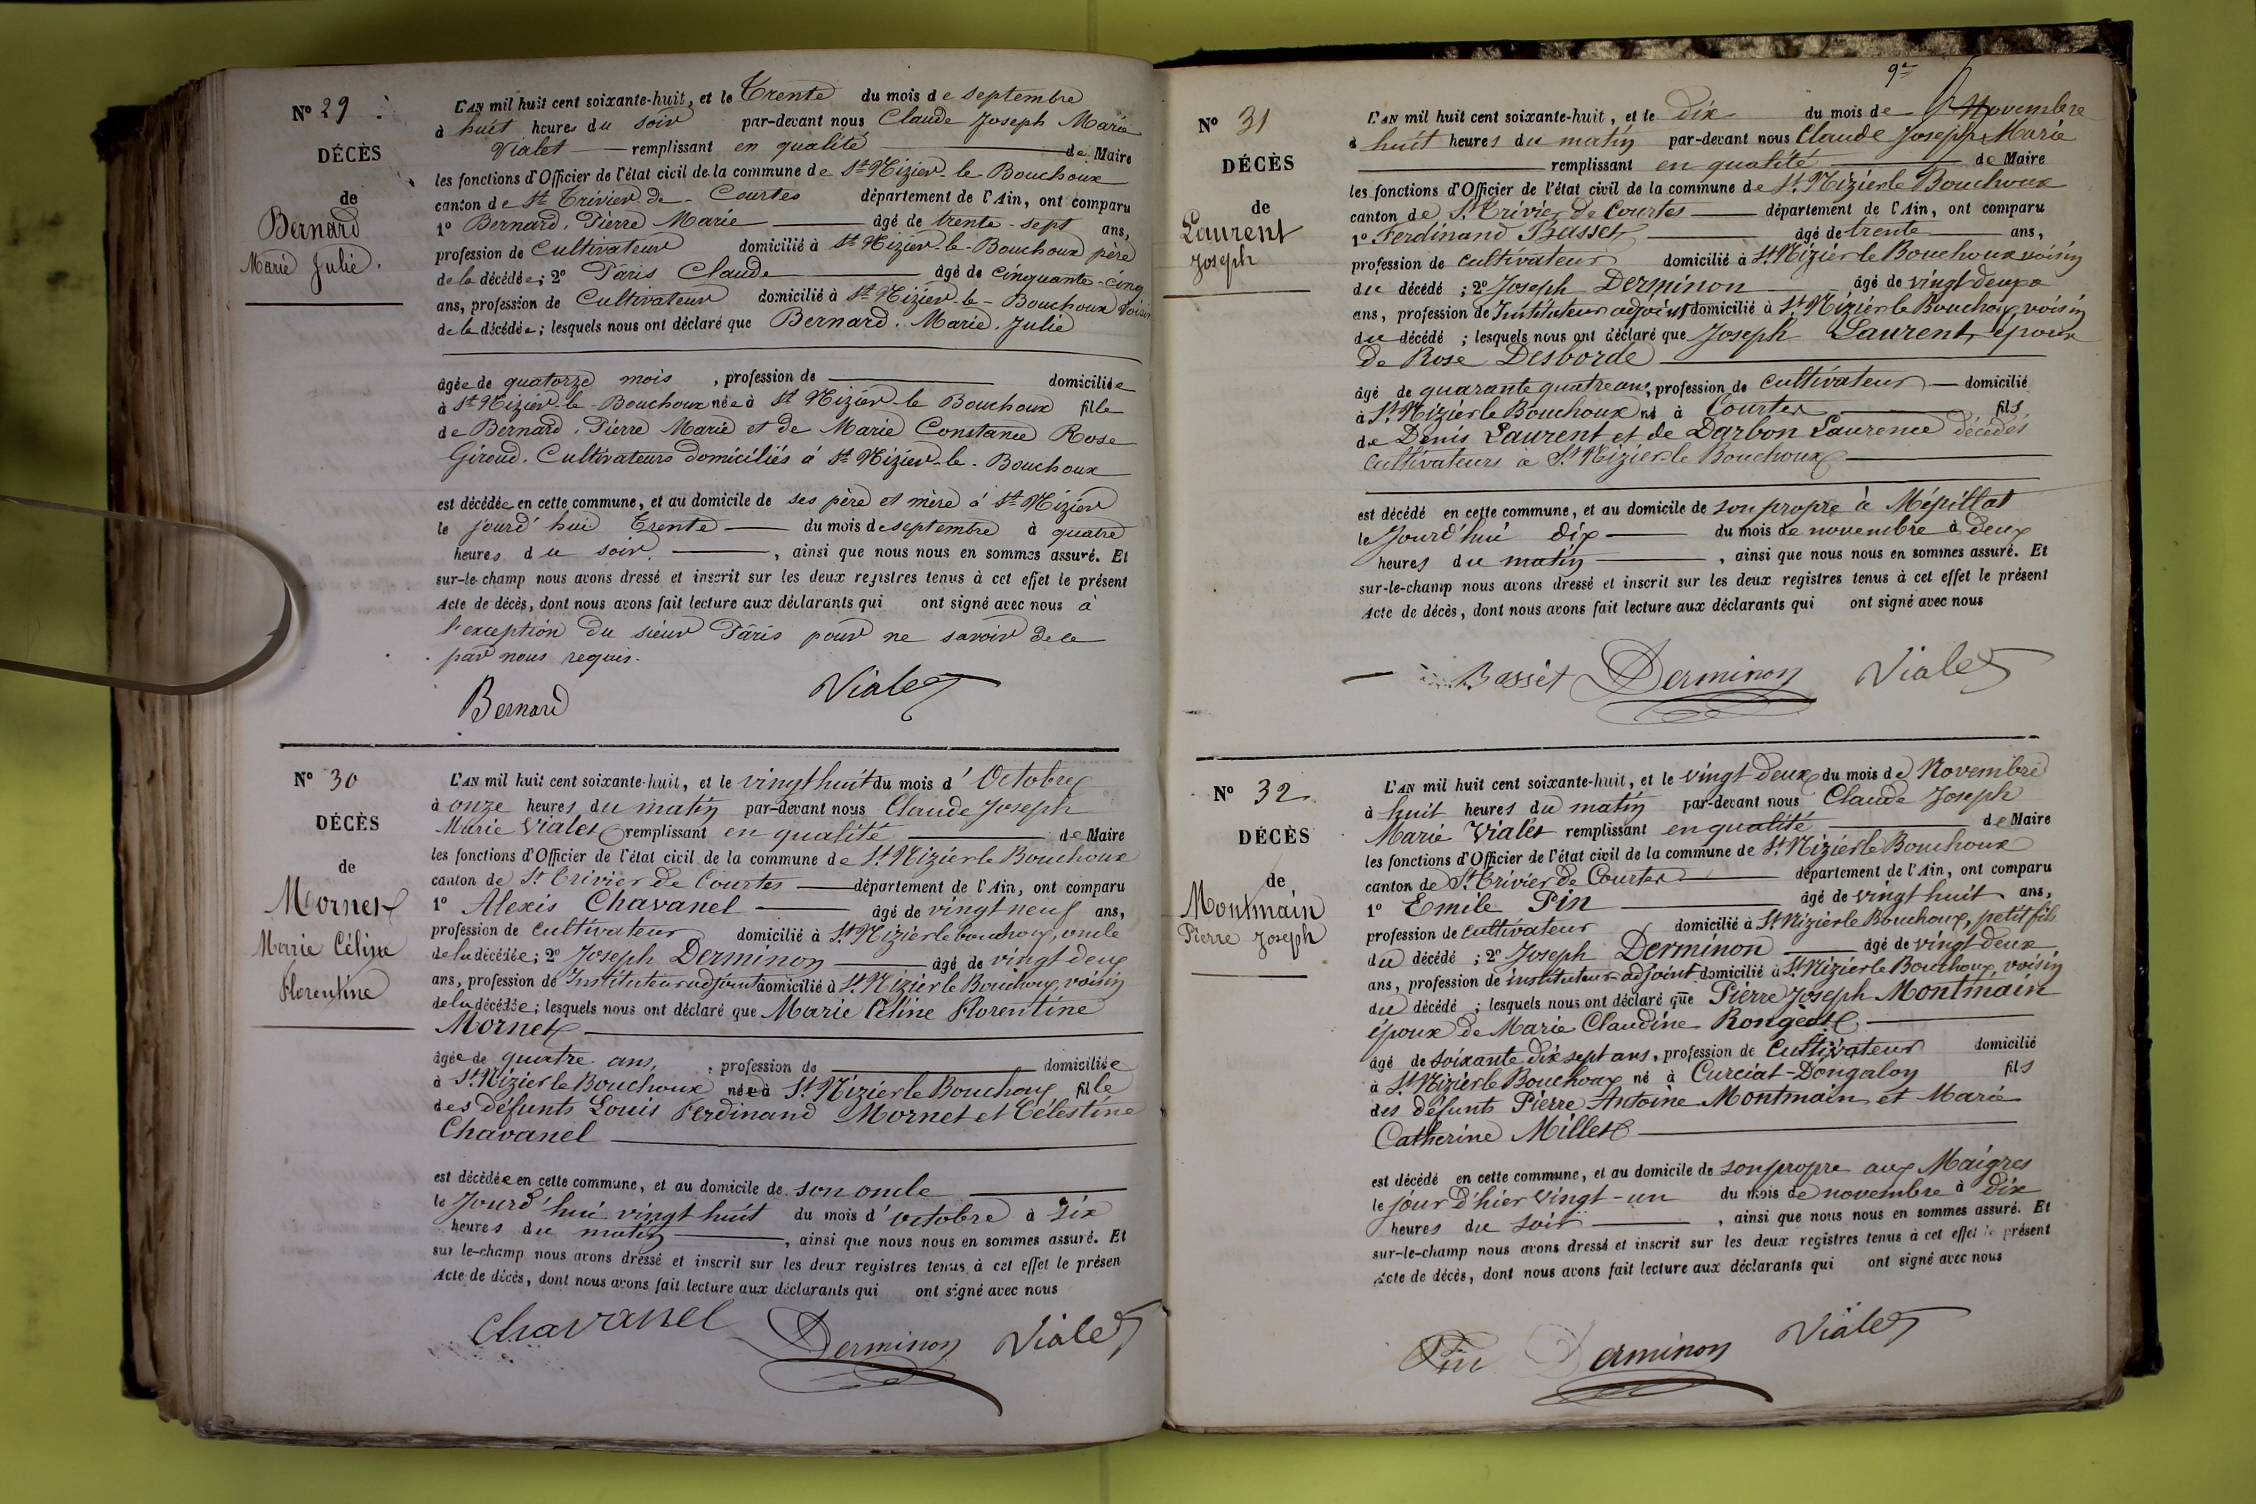 N° 29
DÉCÈS
de
Bernard
Marie Julie.
L'AN mil huit cent soixante-huit, et le Trente du mois de septembre
à huit heures du soir par-devant nous Claude Joseph Marie
Vialet remplissant en qualité de Maire
les fonctions d'Officier de l'état civil de la commune de St Nizier-le-Bouchoux
canton de St Trivier-de-Courtes département de l'Ain, ont comparu
1° Bernard, Pierre Marie âgé de trente-sept ans,
profession de Cultivateur domicilié à St Nizier-le-Bouchoux père
de la décédée; 2° Pâris Claude âgé de cinquante-cinq
ans, profession de Cultivateur domicilié à St Nizier-le-Bouchoux voisin
de la décédée; lesquels nous ont déclaré que Bernard. Marie. Julie
âgée de quatorze mois, profession de domiciliée
à St Nizier-le-Bouchoux née à St Nizier-le Bouchoux fille
de Bernard, Pierre Marie et de Marie Constance Rose
Giroud. Cultivateurs domiciliés à St Nizier-le-Bouchoux
est décédée en cette commune, et au domicile de ses père et mère à St Nizier
le jourd'hui Trente du mois de septembre à quatre
heures du soir, ainsi que nous nous en sommes assuré. Et
sur-le-champ nous avons dressé et inscrit sur les deux registres tenus à cet effet le présent
Acte de décès, dont nous avons fait lecture aux déclarants qui ont signé avec nous à
l'exception du sieur Pâris pour ne savoir de ce
par nous requis.
Bernard Vialet
N° 30
DÉCÈS
de
Mornet
Marie Céline
Florentine
L'AN mil huit cent soixante-huit, et le vingt huit du mois d'Octobre
à onze heures du matin par-devant nous Claude Joseph
Marie Vialet remplissant en qualité de Maire
les fonctions d'Officier de l'état civil de la commune de St Nizier le Bouchoux
canton de St Trivier de Courtes département de l'Ain, ont comparu
1° Alexis Chavanel âgé de vingt neuf ans,
profession de cultivateur domicilié à St Nizier le bouchoux, oncle
de la décédée; 2° Joseph Derminon âgé de vingt deux
ans, profession de Instituteur adjoint domicilié à St Nizier le Bouchoux, voisin
de la décédée; lesquels nous ont déclaré que Marie Céline Florentine
Mornet
âgée de quatre ans, , profession de domiciliée
à St Nizier le Bouchoux née à St Nizier le Bouchoux fille
des défunts Louis Ferdinand Mornet et Célestine
Chavanel
est décédée en cette commune, et au domicile de son oncle
le Jourd'hui vingt huit du mois d'octobre à six
heures du matin, ainsi que nous nous en sommes assuré. Et
sur le-champ nous avons dressé et inscrit sur les deux registres tenus à cet effet le présen
Acte de décès, dont nous avons fait lecture aux déclarants qui ont signé avec nous
Chavanel Derminon Vialet
N° 31
DÉCÈS
de
Laurent
Joseph
L'AN mil huit cent soixante-huit, et le dix du mois de Novembre
à huit heures du matin par-devant nous Claude Joseph Marie
remplissant en qualité de Maire
les fonctions d'Officier de l'état civil de la commune de St Nizier le Bouchoux
canton de St Trivier de Courtes département de l'Ain, ont comparu
1° Ferdinand Basset âgé de trente ans,
profession de cultivateur domicilié à St Nizier le Bouchoux voisin
du décédé; 2° Joseph Derminon âgé de vingt deux
ans, profession de Instituteur adjoint domicilié à St Nizier le Bouchoux, voisin
du décédé; lesquels nous ont déclaré que Joseph Laurent, époux
de Rose Desborde
âgé de quarante quatre ans, profession de cultivateur domicilié
à St Nizier le Bouchoux né à Courtes fils
de Denis Laurent et de Darbon Laurence décédés
cultivateurs à St Nizier le Bouchoux
est décédé en cette commune, et au domicile de son propre à Mépillat
le Jourd'hui dix du mois de novembre à deux
heures du matin, ainsi que nous nous en sommes assuré. Et
sur-le-champ nous avons dressé et inscrit sur les deux registres tenus à cet effet le présent
Acte de décès, dont nous avons fait lecture aux déclarants qui ont signé avec nous
Basset Derminon Vialet
N° 32
DÉCÈS
de
Montmain
Pierre Joseph
L'AN mil huit cent soixante-huit, et le vingt deux du mois de Novembre
à huit heures du matin par-devant nous Claude Joseph
Marie Vialet remplissant en qualité de Maire
les fonctions d'Officier de l'état civil de la commune de St Nizier le Bouchoux
canton de St Trivier de Courtes département de l'Ain, ont comparu
1° Emile Pin âgé de vingt huit ans,
profession de cultivateur domicilié à St Nizier le Bouchoux, petit fils
du décédé; 2° Joseph Derminon âgé de vingt deux
ans, profession de instituteur adjoint domicilié à St Nizier le Bouchoux, voisin
du décédé; lesquels nous ont déclaré que Pierre Joseph Montmain
époux de Marie Claudine
âgé de soixante dix sept ans, profession de Cultivateur domicilié
à St Nizier le Bouchoux né à Curciat-Dongalon fils
des défunts Pierre Antoine Montmain et Marie
Catherine Millet
est décédé en cette commune, et au domicile de son propre aux Maigres
le jour d'hier vingt-un du mois de novembre à dix
heures du soir, ainsi que nous nous en sommes assuré. Et
sur-le-champ nous avons dressé et inscrit sur les deux registres tenus à cet effet le présent
Acte de décès, dont nous avons fait lecture aux déclarants qui ont signé avec nous
Pin Derminon Vialet